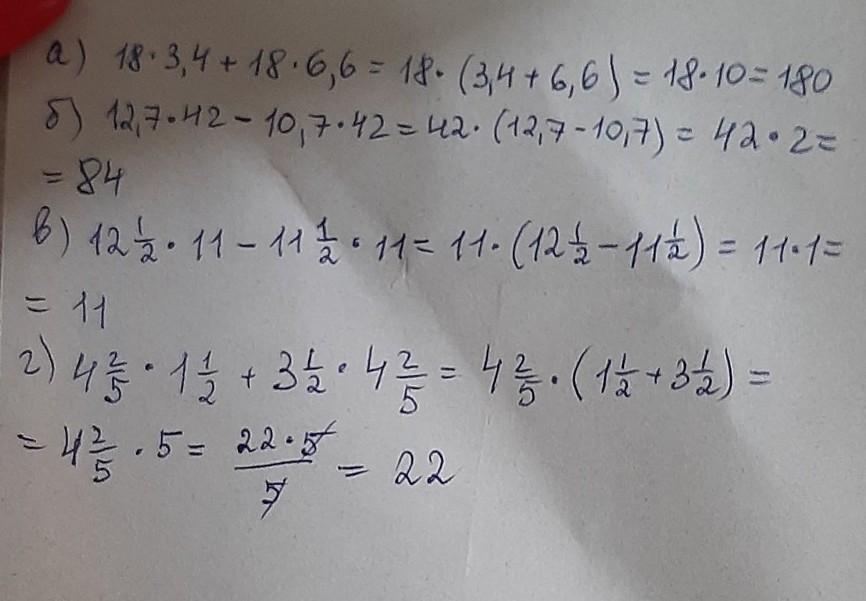 а) 18·3,4 + 18·6,6 = 18·(3,4 + 6,6) = 18·10 = 180
б) 12,7·42 - 10,7·42 = 42·(12,7 - 10,7) = 42·2 =
= 84
в) 12 1/2 · 11 - 11 1/2 · 11 = 11·(12 1/2 - 11 1/2) = 11·1 =
= 11
г) 4 2/5 · 1 1/2 + 3 1/2 · 4 2/5 = 4 2/5 · (1 1/2 + 3 1/2) =
= 4 2/5 · 5 = 22·5/5 = 22